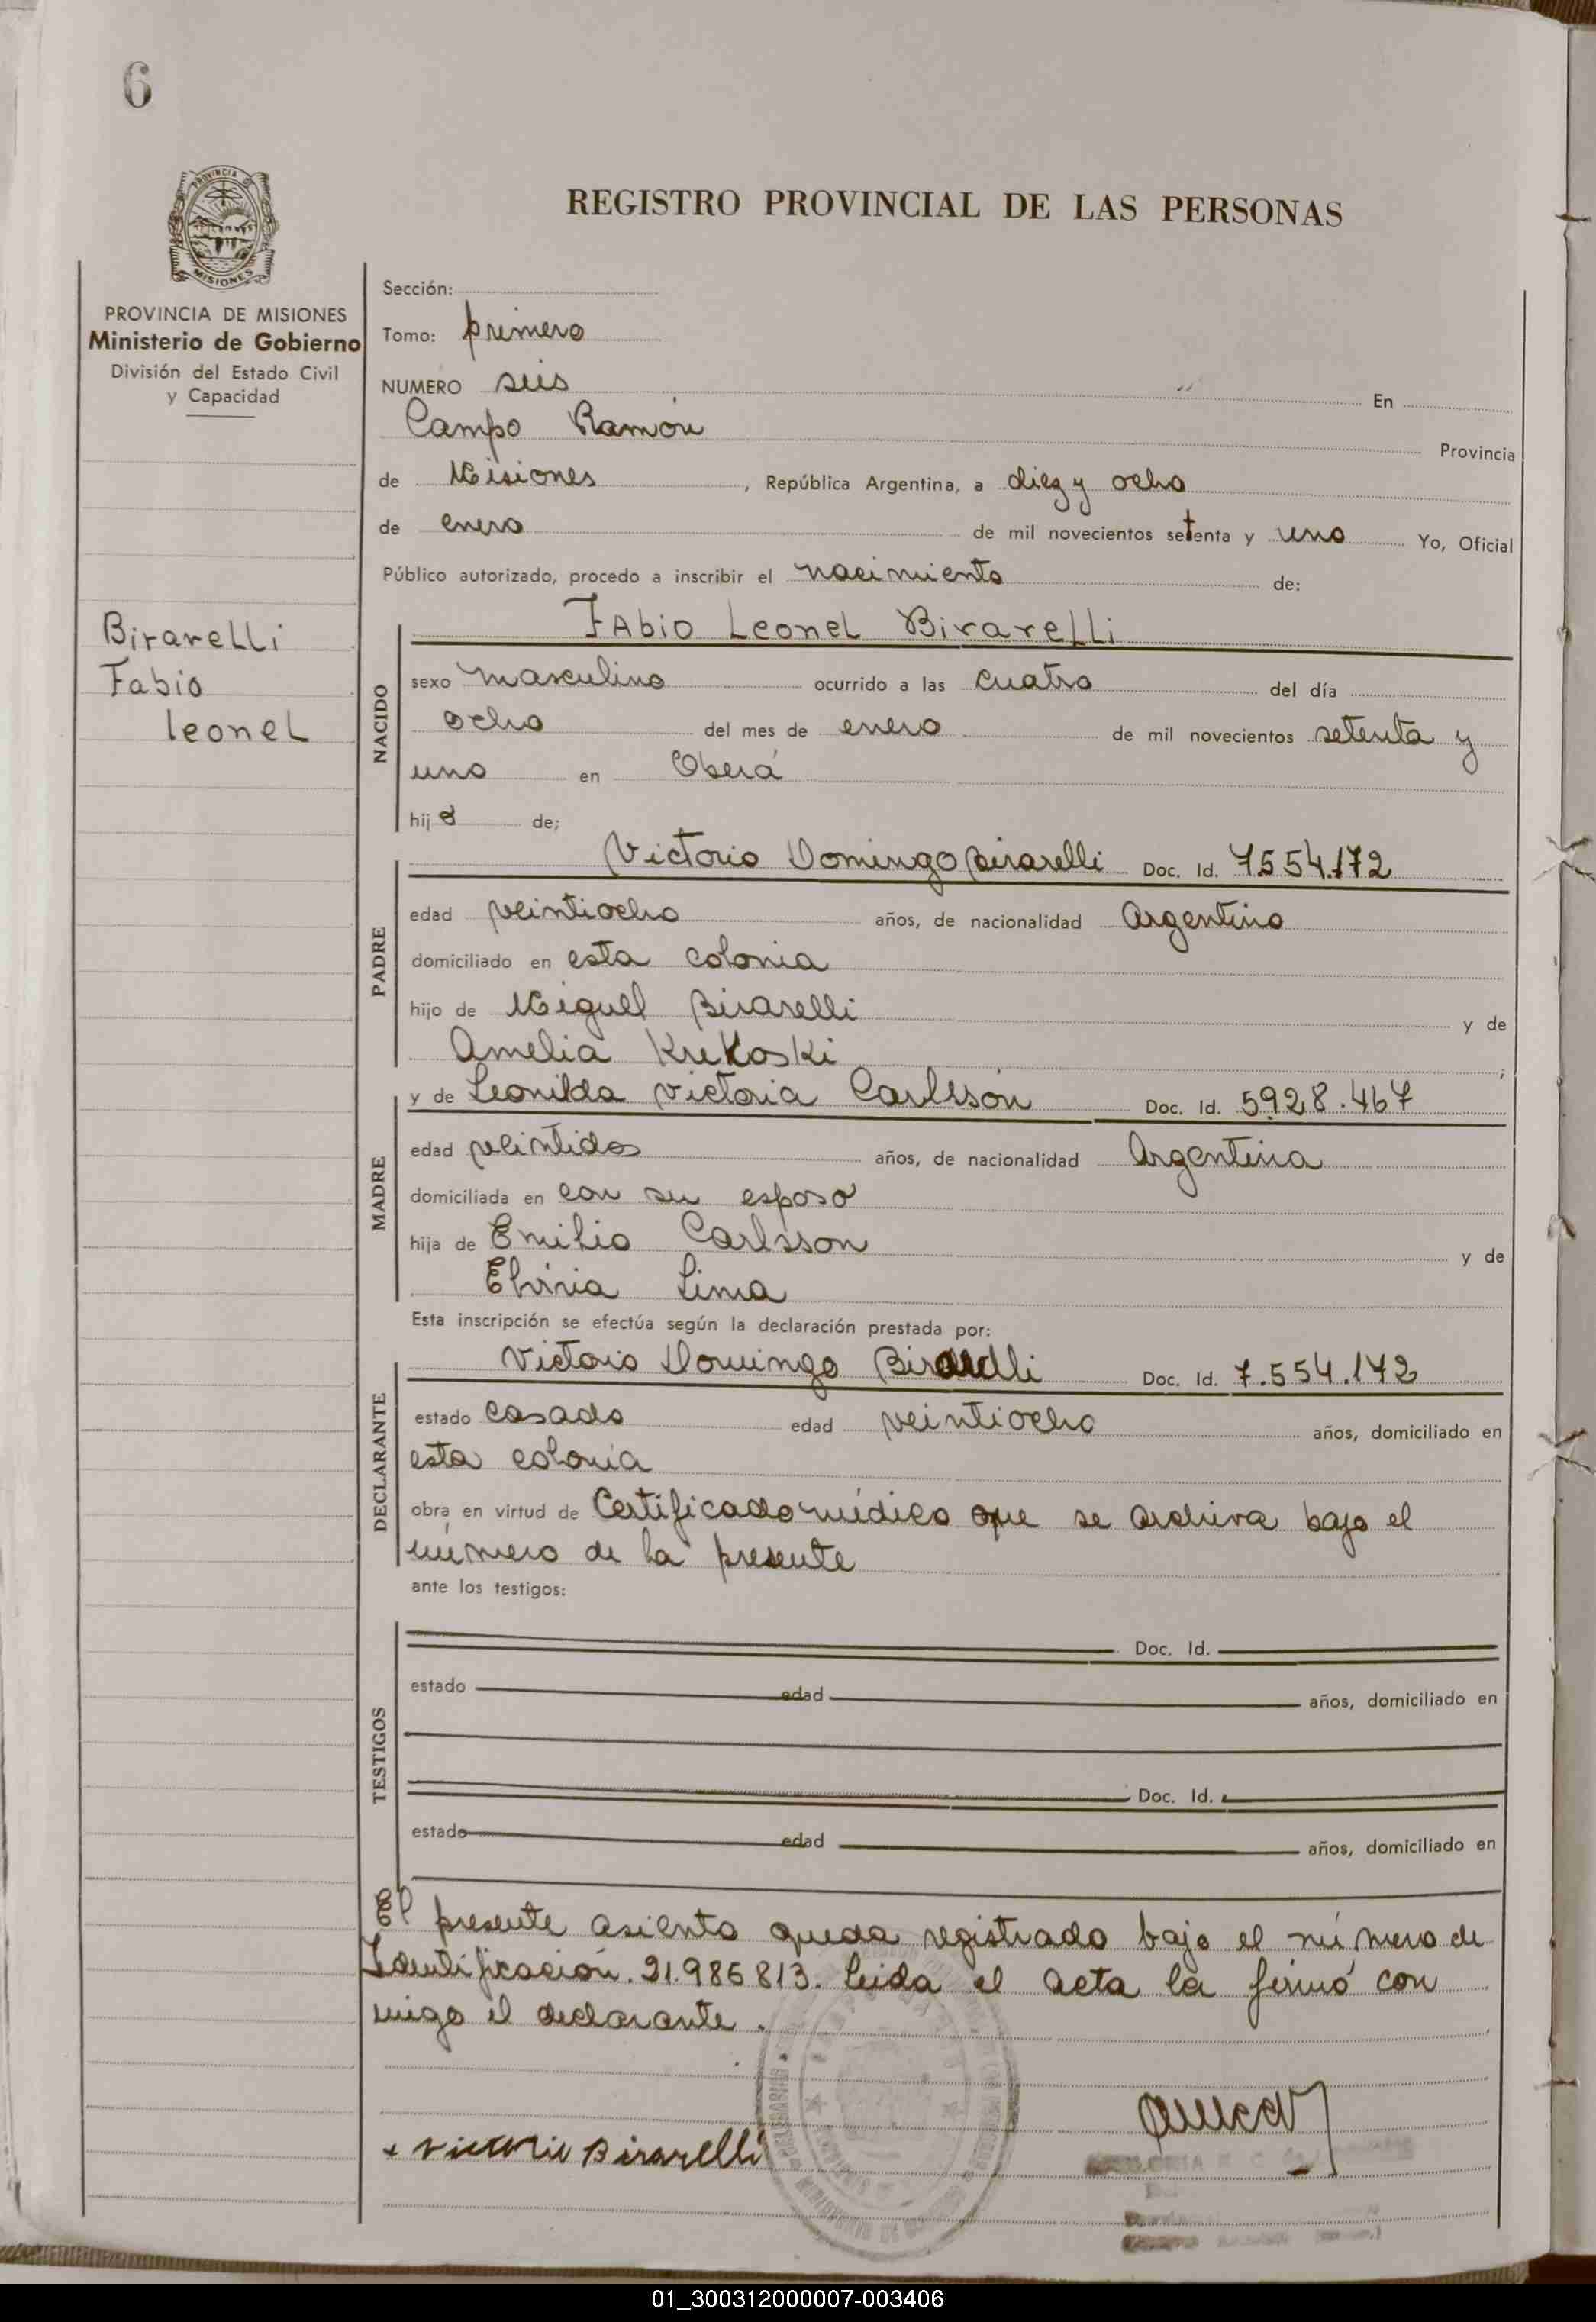 6
PROVINCIA
MISIONES
PROVINCIA DE MISIONES
Ministerio de Gobierno
División del Estado Civil
y Capacidad
Birarelli
Fabio
leonel
REGISTRO PROVINCIAL DE LAS PERSONAS
Sección:
Tomo: primero
NUMERO seis En
Campo Ramón Provincia
de Misiones, República Argentina, a diez y ocho
de enero de mil novecientos setenta y uno Yo, Oficial
Público autorizado, procedo a inscribir el nacimiento de:
NACIDO
Fabio Leonel Birarelli
sexo masculino ocurrido a las cuatro del día
ocho del mes de enero de mil novecientos setenta y
uno en Oberá
hijo de;
PADRE
Victorio Domingo Birarelli Doc. Id. 7554.172
edad veintiocho años, de nacionalidad Argentino
domiciliado en esta colonia
hijo de Miguel Birarelli y de
Amelia Krekoski;
MADRE
y de Leonilda Victoria Carlsson Doc. Id. 5928.467
edad veintidos años, de nacionalidad Argentina
domiciliada en con su esposo
hija de Emilio Carlsson y de
Elviria Lima
Esta inscripción se efectúa según la declaración prestada por:
DECLARANTE
Victorio Domingo Birarelli Doc. Id. 7.554.172
estado casado edad veintiocho años, domiciliado en
esta colonia
obra en virtud de Certificado médico que se archiva bajo el
número de la presente
ante los testigos:
TESTIGOS
Doc. Id.
estado edad años, domiciliado en
Doc. Id.
estado edad años, domiciliado en
El presente asiento queda registrado bajo el número de
Identificación. 21.986813. Leida el acta la firmó con
migo el declarante.
Victorio Birarelli
01_300312000007-003406